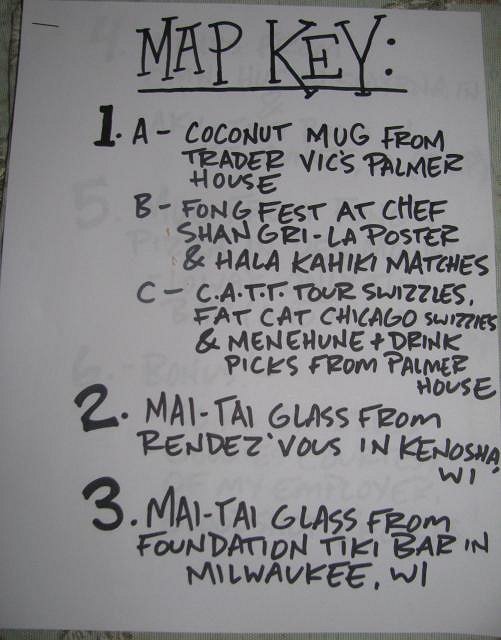 MAP KEY:
1. A - COCONUT MUG FROM
TRADER VIC'S PALMER
HOUSE
B - FONG FEST AT CHEF
SHANGRI-LA POSTER
& HALA KAHIKI MATCHES
C - C.A.T.T. TOUR SWIZZLES,
FAT CAT CHICAGO SWIZZLES
& MENEHUNE + DRINK
PICKS FROM PALMER
HOUSE
2. MAI-TAI GLASS FROM
RENDEZ'VOUS IN KENOSHA,
WI
3. MAI-TAI GLASS FROM
FOUNDATION TIKI BAR IN
MILWAUKEE, WI